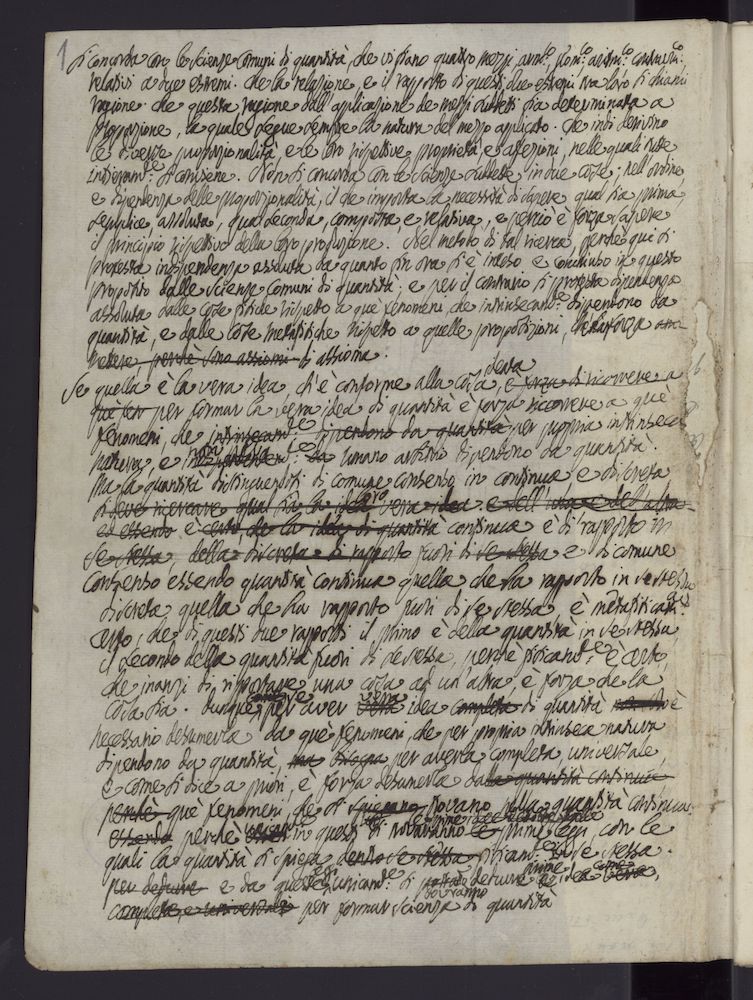 1
Si concorda con le scienze comuni di quantità, che vi siano quattro mezzi
relativi a due estremi. Che la relazione, e il rapporto di questi due estremi tra loro si chiami
ragione. che questa ragione dall'applicazione de mezzi sudetti sia determinata a
proporzione, la quale segue sempre la natura del mezzo applicato. Che indi derivino
le diverse proporzionalità, e le loro rispettive proprietà, e affezioni, nelle quali tutte
si conviene. Non si concorda con le scienze sudette in due cose; nell'ordine
e dipendenza delle proporzionalità, il che importa la necessità di sapere qual sia prima,
semplice, assoluta, qual seconda, composta, e relativa, e perciò è forza sapere
il principio rispettivo della loro produzione. Nel metodo di tal ricerca, perchè qui si
protesta indipendenza assoluta da quanto fin ora si è inteso e conchiuso in questo
proposito dalle scienze comuni di quantità; e per il contrario si protesta dipendenza
assoluta dalle cose fisiche rispetto a que fenomeni, che dipendono da
quantità, e dalle cose metafisiche rispetto a quelle proposizioni,
perchè sono assiomi di assioma.
Se quella è la vera idea, ch'è conforme alla cosa, e forza di ricorrere a
per formar la vera idea di quantità è forza ricorrere a què
fenomeni, che dipendono da quantità per propria intrinseca
natura, e non umano arbitrio dipendono da quantità.
Ma la quantità di comune consenso in continua, e discreta
si deve ricercare qual sia la vera idea e dell'una e dell'altra
ed essendo è certo, che la idea di quantità continua è di rapporto in
se stessa, della discreta di rapporto fuori di se stessa e di comune
consenso essendo quantità continua quella che ha rapporto in se stessa
discreta quella che ha rapporto fuori di se stessa, è
certo, che di questi due rapporti il primo è della quantità in se stessa,
il secondo della quantità fuori di se stessa, perchè è certo,
che inanzi di riportare una cosa ad un'altra, è forza che la
cosa sia. dunque per aver vera idea completa di quantità è
necessario desumerla da què fenomeni, che per propria intrinseca natura
dipendono da quantità, ma bisogna per averla completa, universale,
e come si dice a priori, è forza desumerla dalla quantità continua
perchè què fenomeni, che si spiegano trovano nella quantità continua
essendo perchè in questi si troveranno le prime leggi, con le
quali la quantità si spiega dentro se stessa in se stessa.
per dedurre e da queste si dedurre idea vera,
completa, e universale per formar scienza di quantità